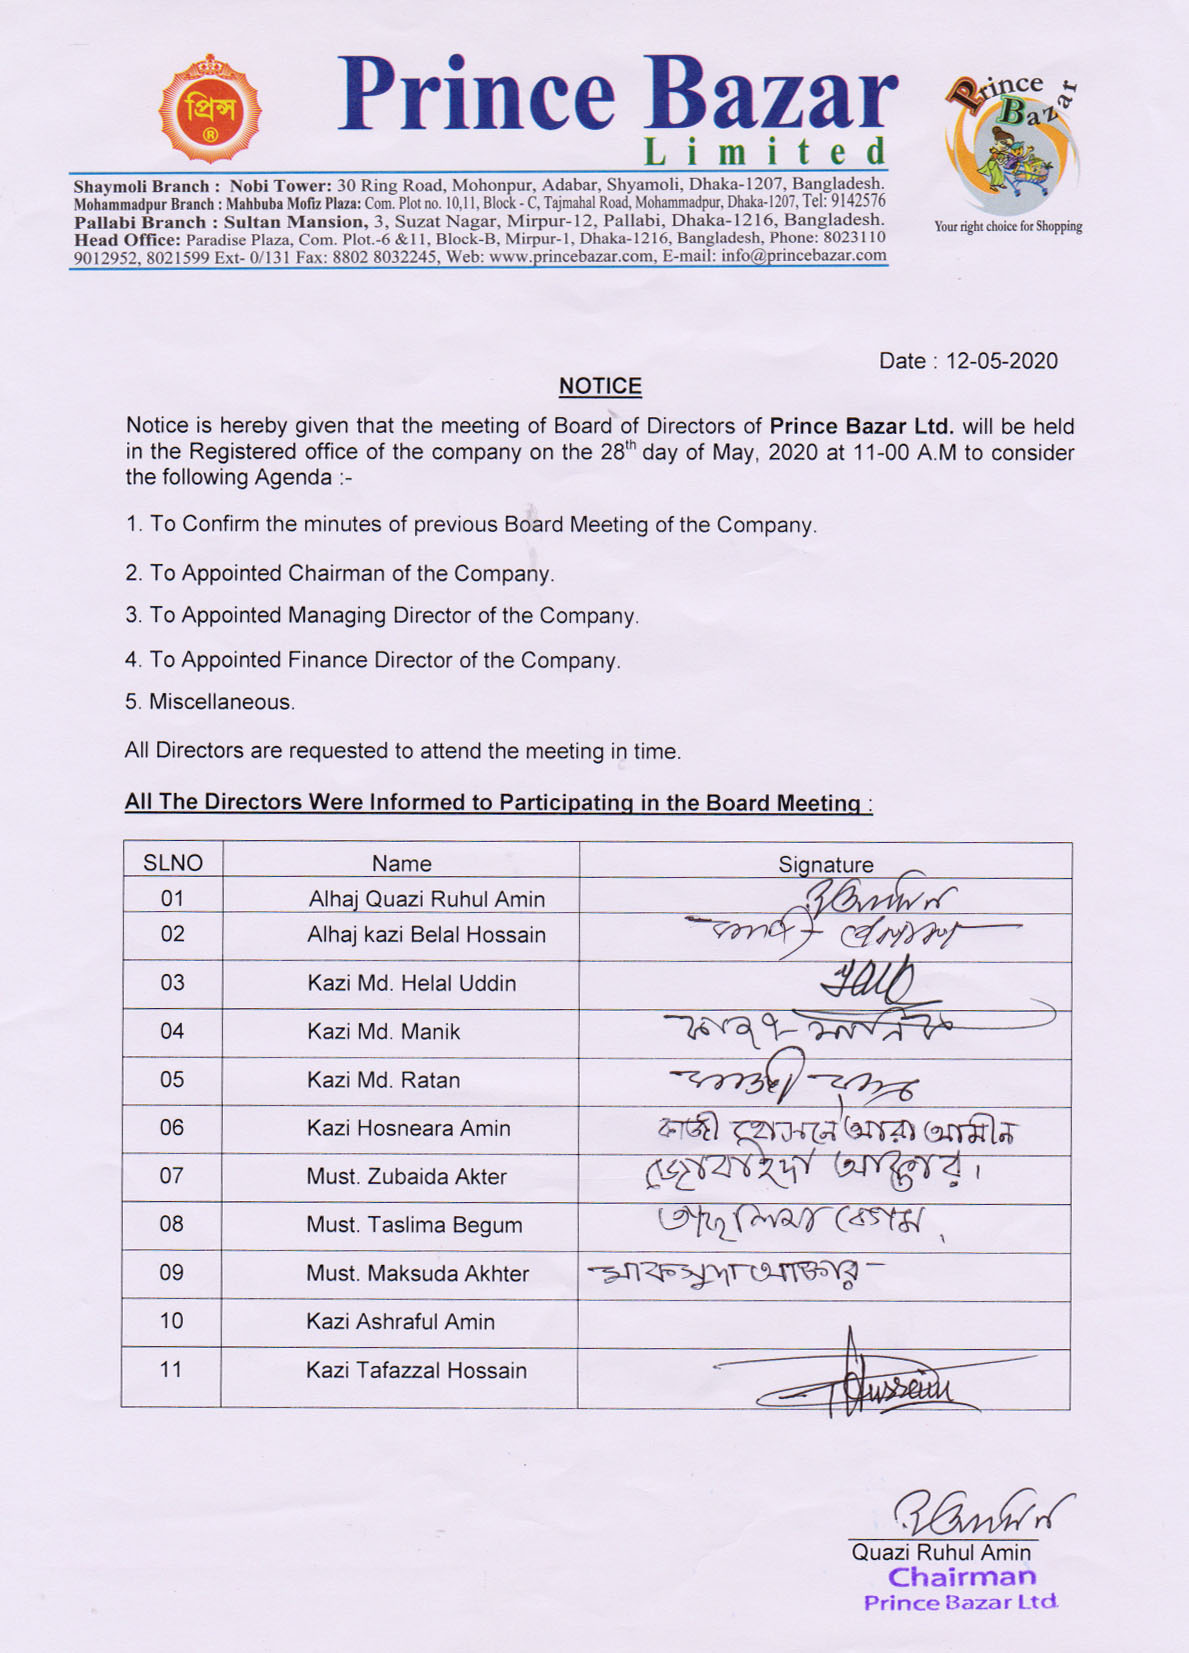 প্রিন্স
®
Prince Bazar
Limited
Prince
Bazar
Your right choice for Shopping
Shaymoli Branch : Nobi Tower: 30 Ring Road, Mohonpur, Adabar, Shyamoli, Dhaka-1207, Bangladesh.
Mohammadpur Branch : Mahbuba Mofiz Plaza: Com. Plot no. 10,11, Block - C, Tajmahal Road, Mohammadpur, Dhaka-1207, Tel: 9142576
Pallabi Branch : Sultan Mansion, 3, Suzat Nagar, Mirpur-12, Pallabi, Dhaka-1216, Bangladesh.
Head Office: Paradise Plaza, Com. Plot.-6 &11, Block-B, Mirpur-1, Dhaka-1216, Bangladesh, Phone: 8023110
9012952, 8021599 Ext- 0/131 Fax: 8802 8032245, Web: www.princebazar.com, E-mail: info@princebazar.com
Date : 12-05-2020
NOTICE
Notice is hereby given that the meeting of Board of Directors of Prince Bazar Ltd. will be held
in the Registered office of the company on the 28th day of May, 2020 at 11-00 A.M to consider
the following Agenda :-
1. To Confirm the minutes of previous Board Meeting of the Company.
2. To Appointed Chairman of the Company.
3. To Appointed Managing Director of the Company.
4. To Appointed Finance Director of the Company.
5. Miscellaneous.
All Directors are requested to attend the meeting in time.
All The Directors Were Informed to Participating in the Board Meeting :
SLNO Name Signature
01 Alhaj Quazi Ruhul Amin
02 Alhaj kazi Belal Hossain
03 Kazi Md. Helal Uddin
04 Kazi Md. Manik
05 Kazi Md. Ratan
06 Kazi Hosneara Amin কাজী হোসনে আরা আমীন
07 Must. Zubaida Akter জোবাইদা আক্তার।
08 Must. Taslima Begum তাছলিমা বেগম
09 Must. Maksuda Akhter মাকসুদা আক্তার
10 Kazi Ashraful Amin
11 Kazi Tafazzal Hossain Hussain
Quazi Ruhul Amin
Chairman
Prince Bazar Ltd.